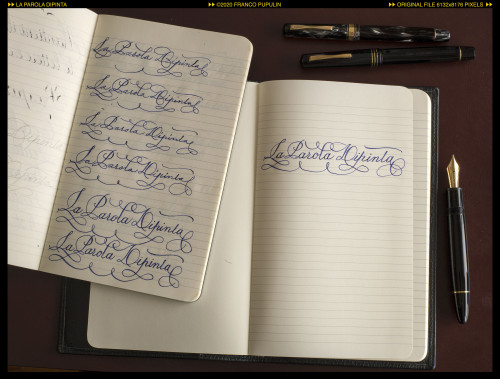 LA PAROLA DIPINTA
©2020 FRANCO PUPULIN
ORIGINAL FILE 6132x8176 PIXELS
La Parola Dipinta
La Parola Dipinta
La Parola Dipinta
La Parola Dipinta
La Parola Dipinta
La Parola Dipinta
La Parola Dipinta